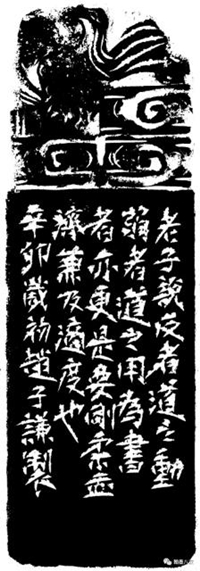 老子說反者道之動
弱者道之用為書
者亦更是要剛柔並
濟兼及適度也
辛卯歲初趙子謙製